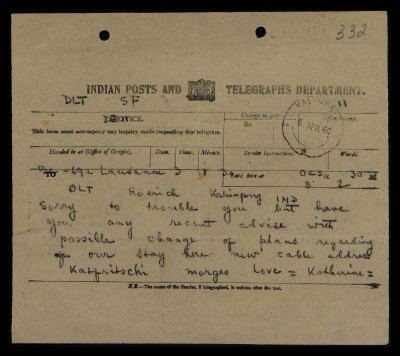 332
INDIAN POSTS AND TELEGRAPHS DEPARTMENT.
DLT SF 11
NOTICE.
This form must accompany any inquiry made respecting this telegram.
Charge to pay
Rs.
6 APR
Handed in at (Office of Origin). Date. Hour. Minute. Service Instructions. Words.
Lausanne 5 8 Recd. here at 30
DLT Roerich Kalimpong IND
Sorry to trouble you but have
you any recent advise with
possible change of plans regarding
our stay here new cable address
Katfritschi morges love = Katherine =
N.B.—The name of the Sender, if telegraphed, is written after the text.